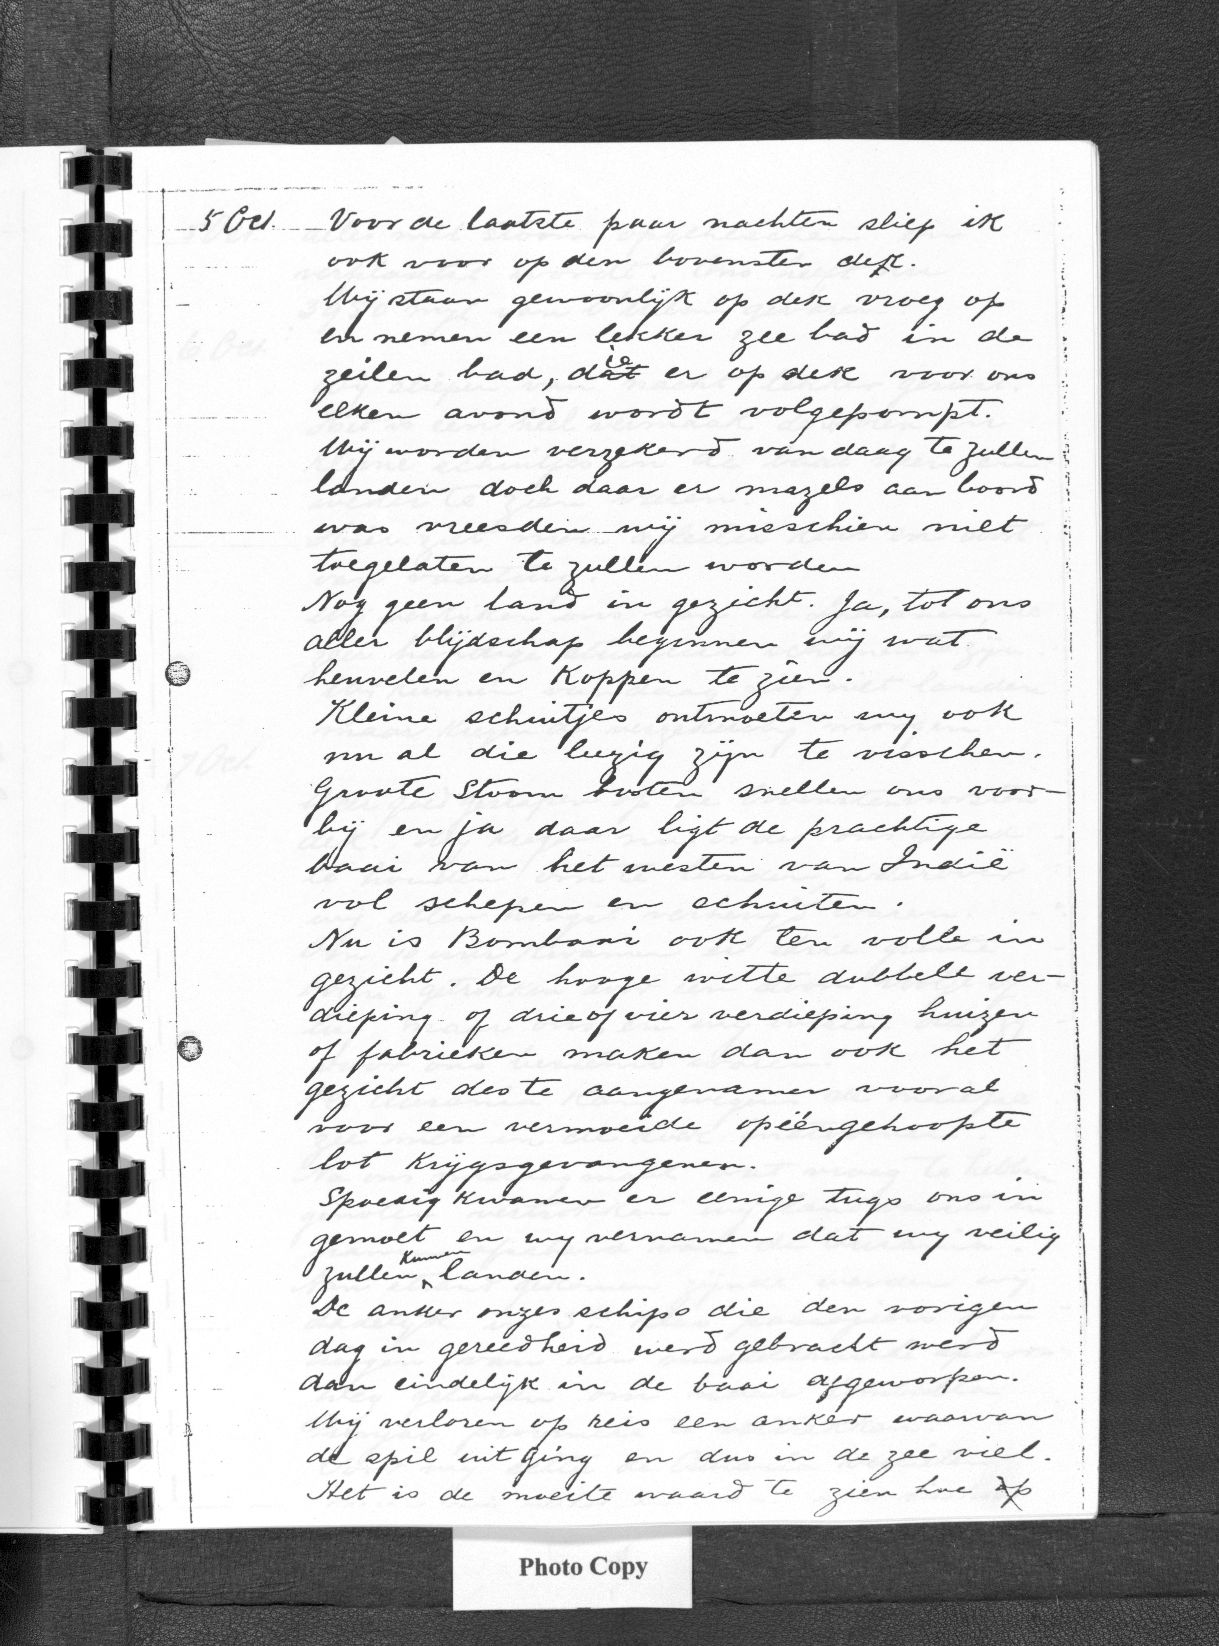 5 Oct. Voor de laatste paar nachten sliep ik
ook voor op den bovensten dek.
Wij staan gewoonlijk op dek vroeg op
en nemen een lekker zee bad in de
zeilen bad, die er op dek voor ons
elken avond wordt volgepompt.
Wij worden verzekerd van daag te zullen
landen doch daar er mazels aan boord
was vreesden wij misschien niet
toegelaten te zullen worden
Nog geen land in gezicht. Ja, tot ons
aller blijdschap beginnen wij wat
heuvelen en Koppen te zien.
Kleine schuitjes ontmoeten wy ook
nu al die bezig zijn te visschen.
Groote Stoom booten snellen ons voor-
bij en ja daar ligt de prachtige
baai van het westen van Indië
vol schepen en schuiten.
Nu is Bombaai ook ten volle in
gezicht. De hooge witte dubbele ver-
dieping of drie of vier verdieping huizen
of fabrieken maken dan ook het
gezicht des te aangenamer vooral
voor een vermoeide opeéngehoopte
lot Krijgsgevangenen.
Spoedig Kwamen er eenige tugs ons in
gemoet en wy vernamen dat wy veilig
zullen Kunnen landen.
De anker onzes schips die den vorigen
dag in gereedheid werd gebracht werd
dan eindelijk in de baai afgeworpen.
Wij verloren op reis een anker waarvan
de spil uit ging en dus in de zee viel.
Het is de moeite waard te zien hoe op
Photo Copy